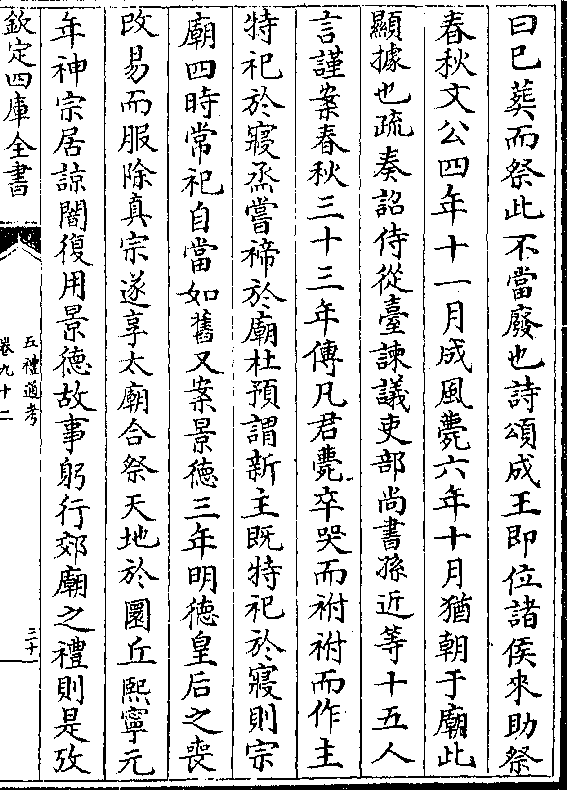 曰已葬而祭此不當廢也詩頌成王即位諸侯來助祭
春秋文公四年十一月成風薨六年十月猶朝于廟此
顯據也疏奏詔侍從臺諫議吏部尚書孫近等十五人
言謹案春秋三十三年傳凡君薨卒哭而祔祔而作主
特祀於寢烝嘗禘於廟杜預謂新主既特祀於寢則宗
廟四時常祀自當如舊又案景徳三年明徳皇后之喪
改易而服除真宗遂享太廟合祭天地於圜丘熙寧元
年神宗居諒闇復用景徳故事躬行郊廟之禮則是攷
欽定四庫全書
五禮通考
卷九十二
三十